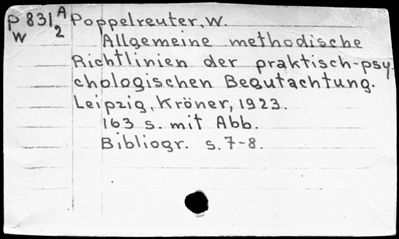 P 831 A Poppelreuter, W.
W 2
Allgemeine methodische
Richtlinien der praktisch-psy
chologischen Begutachtung.
Leipzig, Kröner, 1923.
163 s. mit Abb.
Bibliogr. s. 7-8.